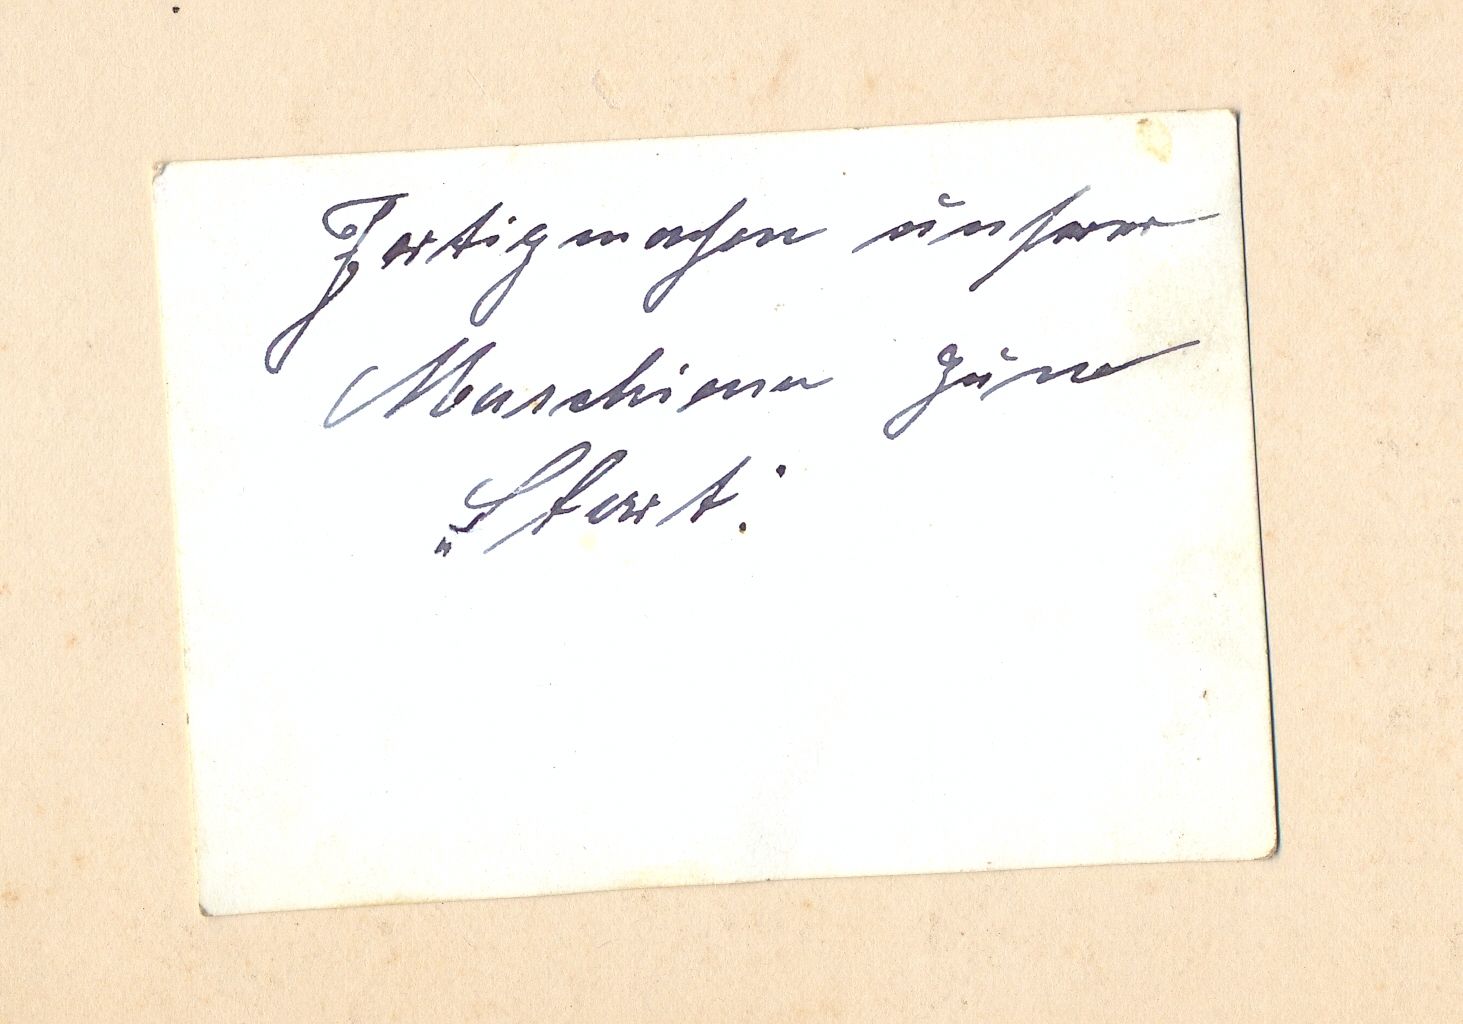 Fertigmachen unserer
Maschine zum
„Start".